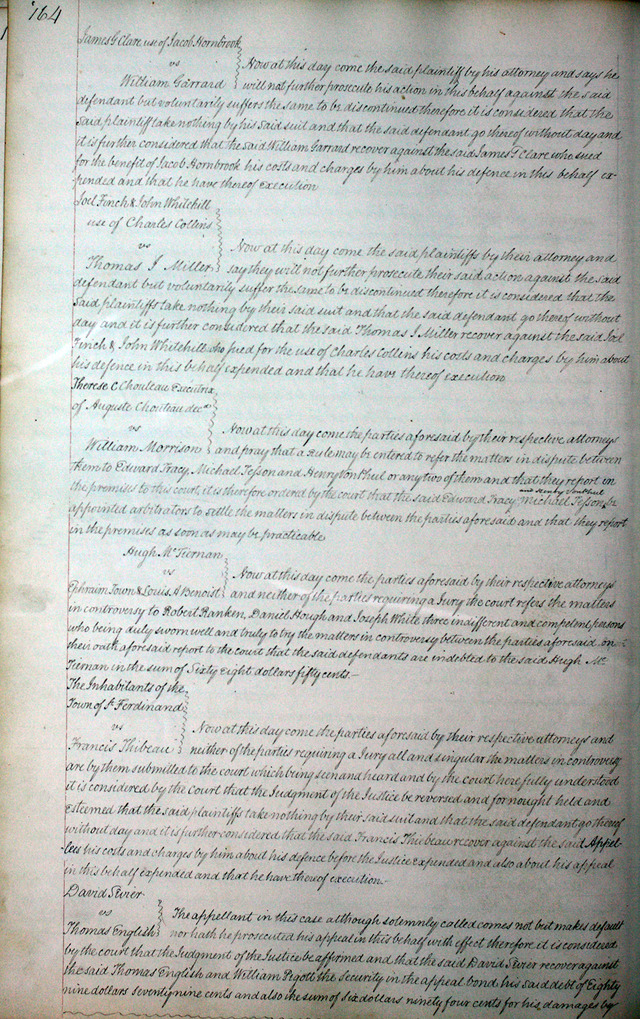 164
James G Clare use of Jacob Hornbrook
vs
William Garrard
Now at this day come the said plaintiff by his attorney and says he
will not further prosecute his action in this behalf against the said
defendant but voluntarily suffers the same to be discontinued therefore it is considered that the
said plaintiff take nothing by his said suit and that the said defendant go thereof without day and
it is further considered that the said William Garrard recover against the said James G Clare who sued
for the benefit of Jacob Hornbrook his costs and charges by him about his defence in this behalf ex-
pended and that he have thereof execution
Joel Finch & John Whitehill
use of Charles Collins
vs
Thomas J Miller
Now at this day come the said plaintiffs by their attorney and
say they will not further prosecute their said action against the said
defendant but voluntarily suffer the same to be discontinued therefore it is considered that the
said plaintiffs take nothing by their said suit and that the said defendant go thereof without
day and it is further considered that the said Thomas J Miller recover against the said Joel
Finch & John Whitehill who sued for the use of Charles Collins his costs and charges by him about
his defence in this behalf expended and that he have thereof execution
Therese C Chouteau Executrix
of Auguste Chouteau decd
vs
William Morrison
Now at this day come the parties aforesaid by their respective attorneys
and pray that a Rule may be entered to refer the matters in dispute between
them to Edward Tracy Michael Tesson and Henry Von Phul or any two of them and that they report in
the premises to this court, it is therefore ordered by the court that the said Edward Tracy Michael Tesson and Henry Von Phul be
appointed arbitrators to settle the matters in dispute between the parties aforesaid and that they report
in the premises as soon as may be practicable
Hugh McTiernan
vs
Ephraim Town & Louis A Benoist
Now at this day come the parties aforesaid by their respective attorneys
and neither of the parties requiring a Jury the court refers the matters
in controversy to Robert Ranken, Daniel Hough and Joseph White three indifferent and competent persons
who being duly sworn well and truly to try the matters in controversy between the parties aforesaid on
their oath aforesaid report to the court that the said defendants are indebted to the said Hugh Mc
Tiernan in the sum of Sixty Eight dollars fifty cents.—
The Inhabitants of the
Town of St Ferdinand
vs
Francis Thibeau
Now at this day come the parties aforesaid by their respective attorneys and
neither of the parties requiring a Jury all and singular the matters in controversy
are by them submitted to the court which being seen and heard and by the court here fully understood
it is considered by the court that the Judgment of the Justice be reversed and for nought held and
esteemed that the said plaintiffs take nothing by their said suit and that the said defendant go thereof
without day and it is further considered that the said Francis Thibeau recover against the said Appel-
-lees his costs and charges by him about his defence before the Justice expended and also about his appeal
in this behalf expended and that he have thereof execution.—
David Sevier
vs
Thomas English
The appellant in this case although solemnly called comes not but makes default
nor hath he prosecuted his appeal in this behalf with effect therefore it is considered
by the court that the Judgment of the Justice be affirmed and that the said David Sevier recover against
the said Thomas English and William Pigott the security in the appeal bond his said debt of Eighty
nine dollars seventy nine cents and also the sum of six dollars ninety four cents for his damages by